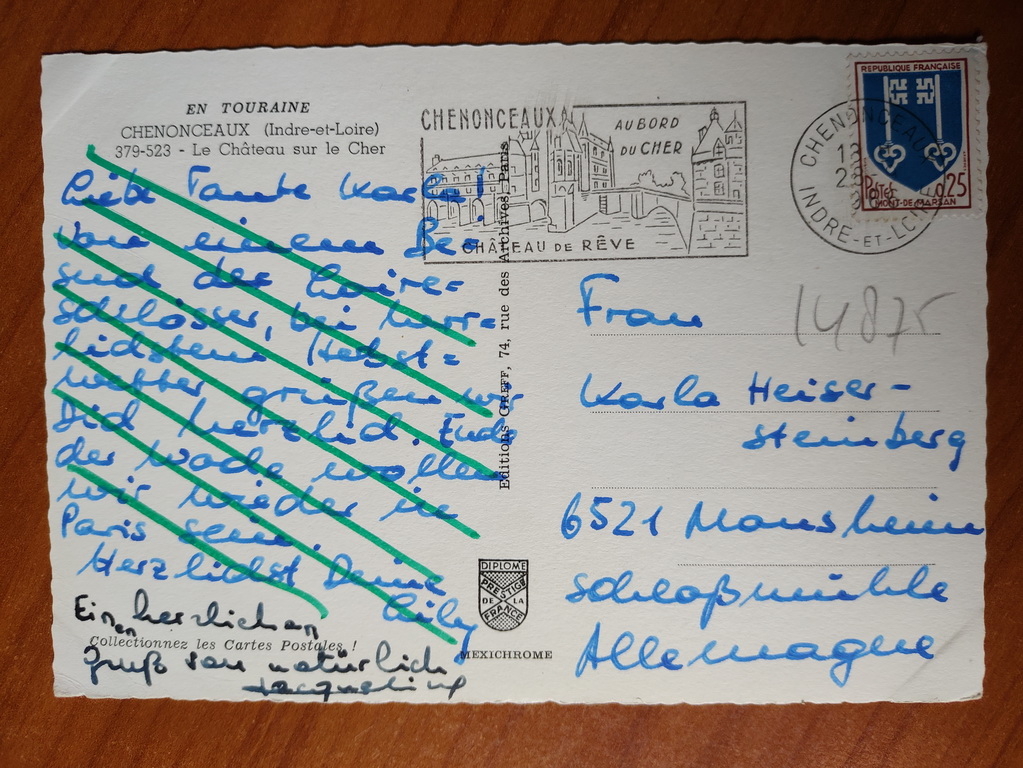 EN TOURAINE
CHENONCEAUX (Indre-et-Loire)
379-523 - Le Château sur le Cher
Liebe Tante Karla!
Von einem Be-
such der Loire=
schlösser, bei herr=
lichstem Herbst=
wetter grüßen wir
Dich herzlich. Ende
der Woche wollen
wir wieder in
Paris sein.
Herzlichst Deine
Cily
Einen herzlichen
Gruß von natürlich
Jacqueline
Collectionnez les Cartes Postales !
Editions GREFF, 74, rue des Archives, Paris
DIPLOME
PRESTIGE
DE LA
FRANCE
MEXICHROME
CHENONCEAUX
AU BORD
DU CHER
CHÂTEAU DE RÊVE
CHENONCEAUX
INDRE-ET-LOIRE
REPUBLIQUE FRANÇAISE
POSTES 0,25
MONT-DE-MARSAN
14875
Frau
Karla Heiser-
Steinberg
6521 Monsheim
Schloßmühle
Allemagne